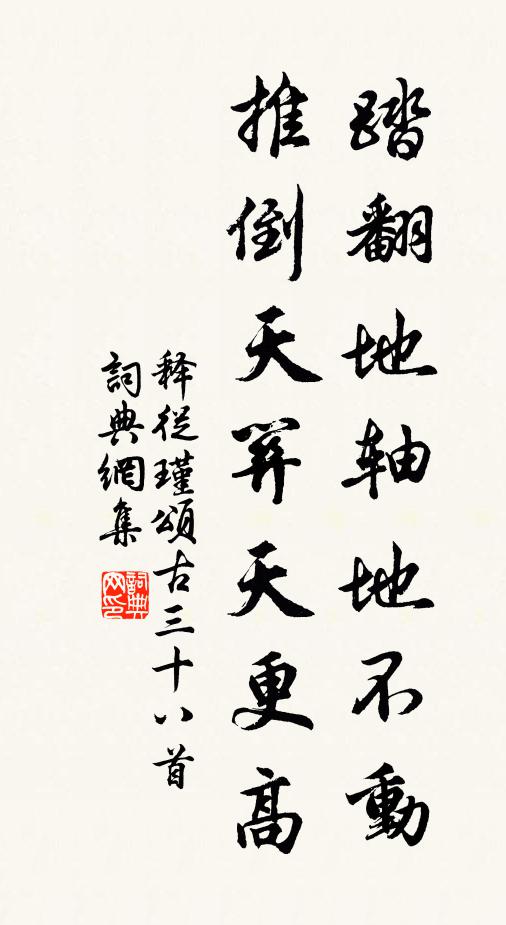 踏翻地轴地不動
推倒天關天更高
释從瑾頌古三十八首
詞典網集
詞典网印